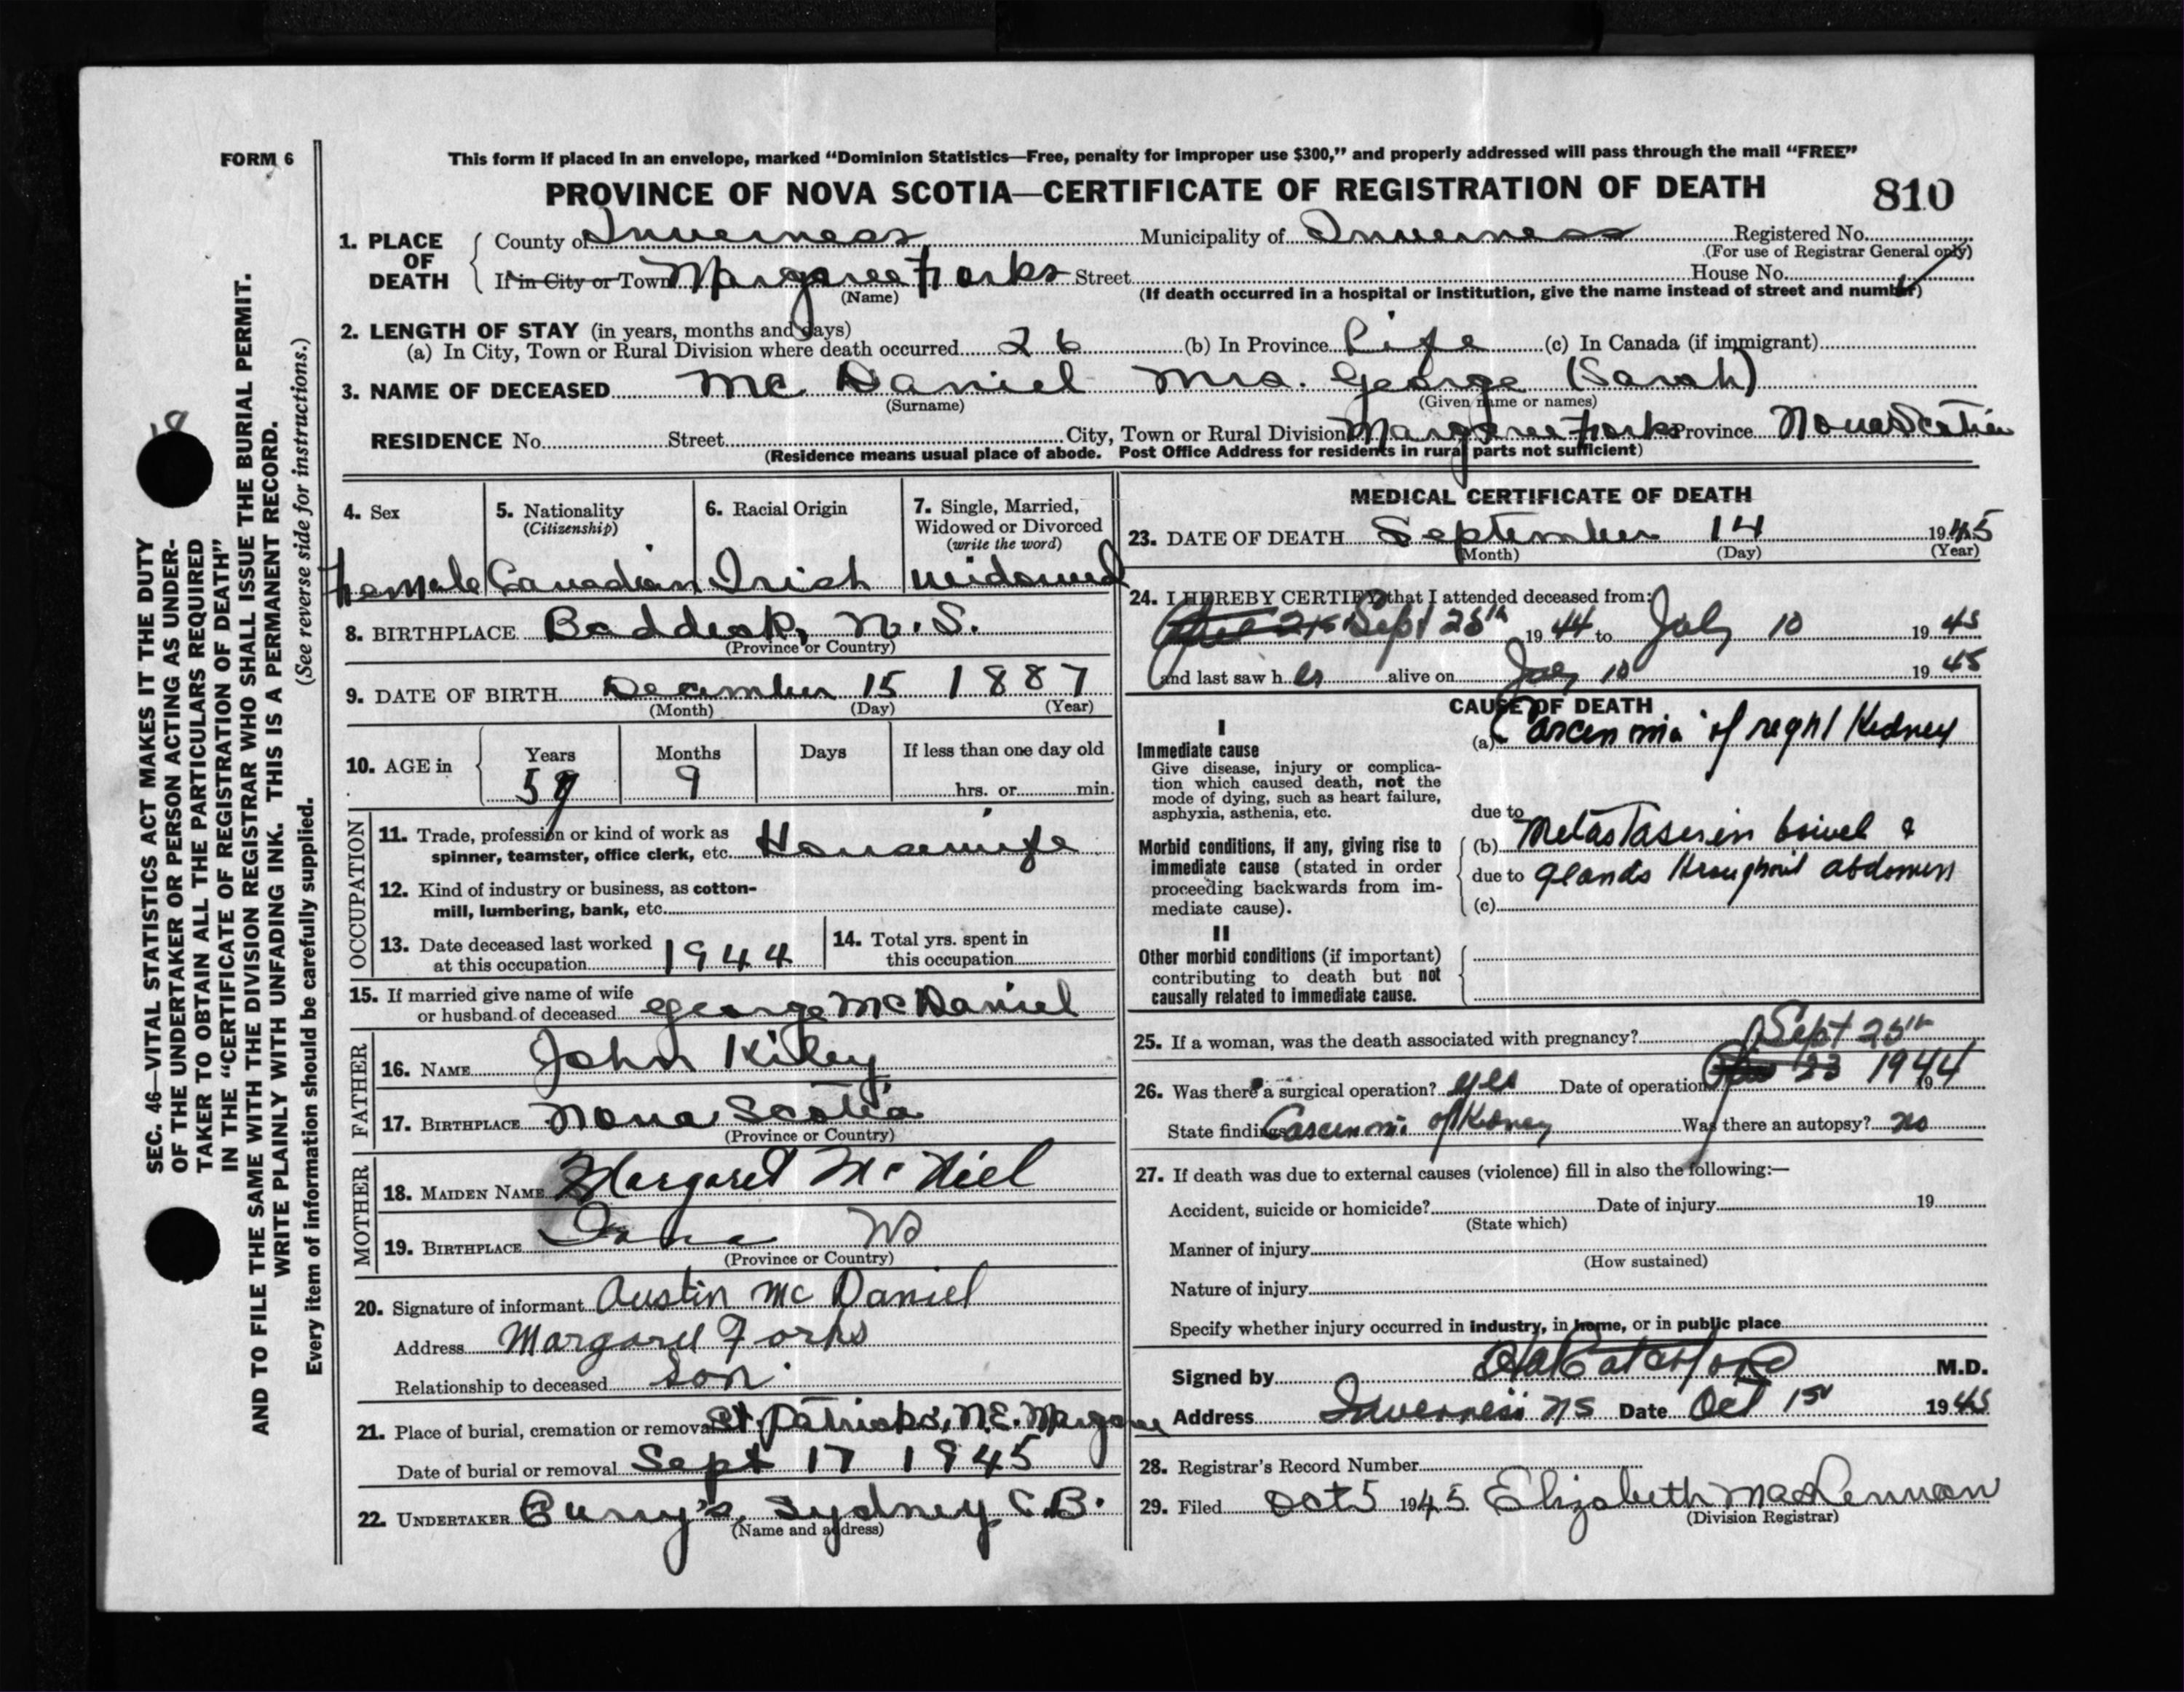 FORM 6
This form if placed in an envelope, marked "Dominion Statistics—Free, penalty for improper use $300," and properly addressed will pass through the mail "FREE"
PROVINCE OF NOVA SCOTIA—CERTIFICATE OF REGISTRATION OF DEATH 810
1. PLACE OF DEATH County of Inverness Municipality of Inverness Registered No.
(For use of Registrar General only)
If in City or Town Margaree Forks Street House No.
(Name) (If death occurred in a hospital or institution, give the name instead of street and number)
2. LENGTH OF STAY (in years, months and days)
(a) In City, Town or Rural Division where death occurred 26 (b) In Province Life (c) In Canada (if immigrant)
3. NAME OF DECEASED Mc Daniel Mrs. George (Sarah)
(Surname) (Given name or names)
RESIDENCE No. Street City, Town or Rural Division Margaree Forks Province Nova Scotia
(Residence means usual place of abode. Post Office Address for residents in rural parts not sufficient)
4. Sex 5. Nationality (Citizenship) 6. Racial Origin 7. Single, Married, Widowed or Divorced (write the word)
Female Canadian Irish widowed
8. BIRTHPLACE Baddeck, N.S.
(Province or Country)
9. DATE OF BIRTH December 15 1887
(Month) (Day) (Year)
10. AGE in Years Months Days If less than one day old
9 hrs. or min.
OCCUPATION
11. Trade, profession or kind of work as
spinner, teamster, office clerk, etc. Housewife
12. Kind of industry or business, as cotton-
mill, lumbering, bank, etc.
13. Date deceased last worked
at this occupation 1944
14. Total yrs. spent in
this occupation
15. If married give name of wife
or husband of deceased George McDaniel
FATHER
16. NAME John Kiley
17. BIRTHPLACE Nova Scotia
(Province or Country)
MOTHER
18. MAIDEN NAME Margaret McNiel
19. BIRTHPLACE Iona NS
(Province or Country)
20. Signature of informant Austin McDaniel
Address Margaree Forks
Relationship to deceased Son
21. Place of burial, cremation or removal St. Patrick's, N.E. Margaree
Date of burial or removal Sept 17 1945
22. UNDERTAKER Curry's, Sydney C.B.
(Name and address)
MEDICAL CERTIFICATE OF DEATH
23. DATE OF DEATH September 14 1945
(Month) (Day) (Year)
24. I HEREBY CERTIFY that I attended deceased from:
Sept 25th 1944 to July 10 1945
and last saw her alive on July 10 1945
CAUSE OF DEATH
I
Immediate cause
Give disease, injury or complica-
tion which caused death, not the
mode of dying, such as heart failure,
asphyxia, asthenia, etc.
(a) Carcenomia of right Kidney
due to
Morbid conditions, if any, giving rise to
immediate cause (stated in order
proceeding backwards from im-
mediate cause).
(b) Metastases in bowel &
due to glands throughout abdomen
(c)
II
Other morbid conditions (if important)
contributing to death but not
causally related to immediate cause.
25. If a woman, was the death associated with pregnancy?
Sept 25th
26. Was there a surgical operation? yes Date of operation 1944 19
State findings Carcenomi of Kidney Was there an autopsy? no
27. If death was due to external causes (violence) fill in also the following:—
Accident, suicide or homicide? Date of injury 19
(State which)
Manner of injury
(How sustained)
Nature of injury
Specify whether injury occurred in industry, in home, or in public place
Signed by M.D.
Address Inverness NS Date Oct 1st 1945
28. Registrar's Record Number
29. Filed Oct 5 1945 Elizabeth MacLennan
(Division Registrar)
SEC. 46—VITAL STATISTICS ACT MAKES IT THE DUTY
OF THE UNDERTAKER OR PERSON ACTING AS UNDER-
TAKER TO OBTAIN ALL THE PARTICULARS REQUIRED
IN THE "CERTIFICATE OF REGISTRATION OF DEATH"
AND TO FILE THE SAME WITH THE DIVISION REGISTRAR WHO SHALL ISSUE THE BURIAL PERMIT.
WRITE PLAINLY WITH UNFADING INK. THIS IS A PERMANENT RECORD.
Every item of information should be carefully supplied. (See reverse side for instructions.)